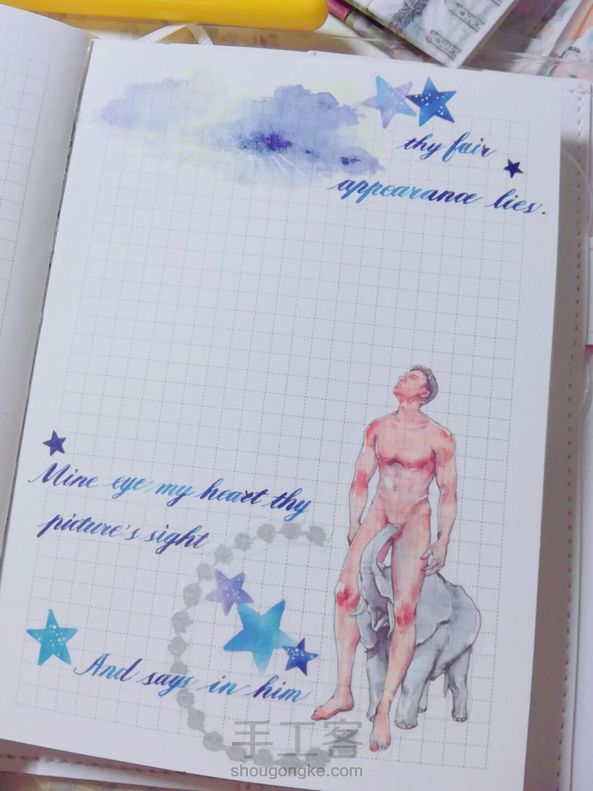 thy fair
appearance lies.
Mine eye my heart thy
picture's sight
And says in him
手工客
shougongke.com